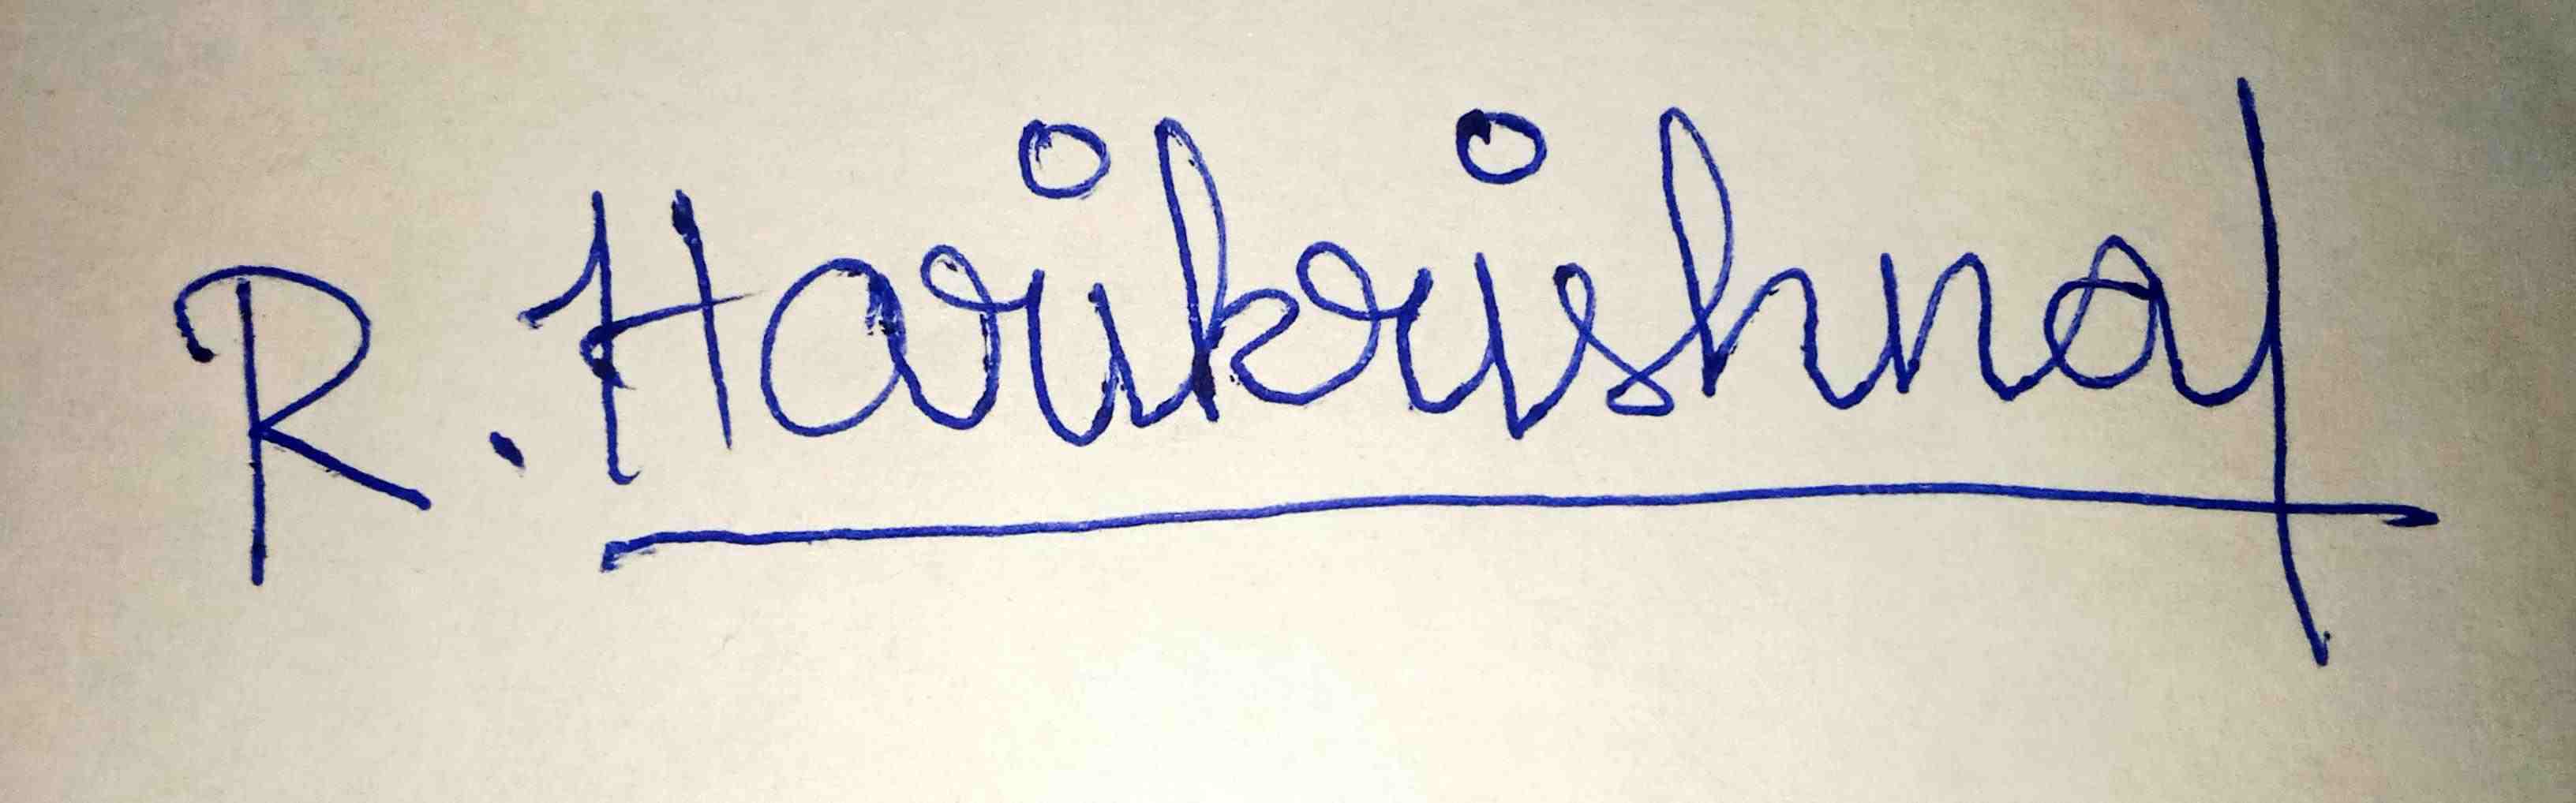 R. Harikrishna